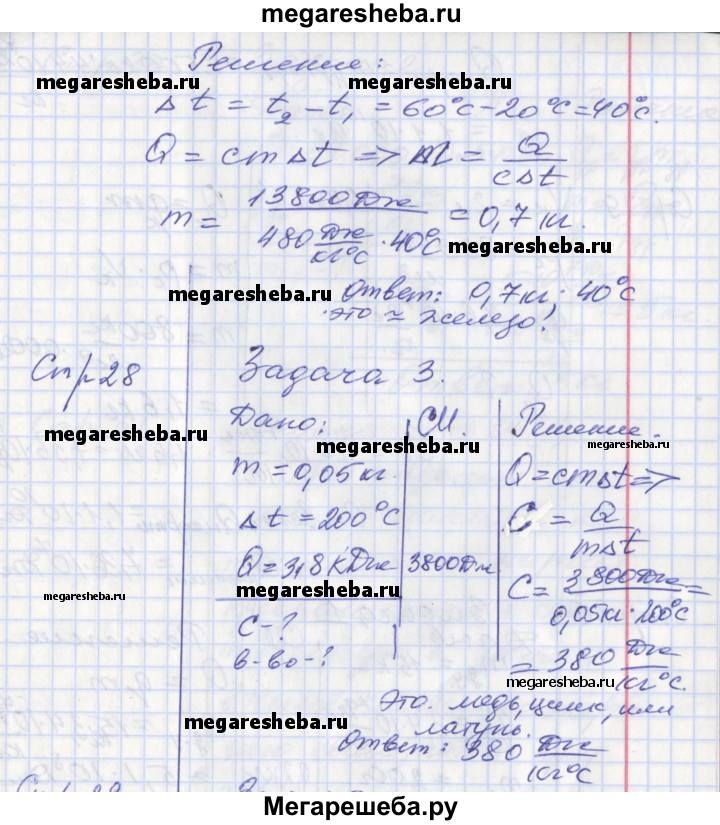 megaresheba.ru
Решение:
megaresheba.ru megaresheba.ru
Δt = t₂ - t₁ = 60°C - 20°C = 40°C.
Q = cmΔt => m = Q/cΔt
m = 13800Дж / 480 Дж/кг°C · 40°C = 0,7 кг.
megaresheba.ru
megaresheba.ru
Ответ: 0,7кг; 40°C
это ≈ железо!
Стр 28
Задача 3.
Дано:
СИ.
Решение.
megaresheba.ru megaresheba.ru megaresheba.ru
m = 0,05кг.
Q = cmΔt =>
Δt = 200°C
C = Q/mΔt
Q = 3,8 кДж
3800Дж
C = 3800Дж / 0,05кг · 200°C =
megaresheba.ru megaresheba.ru
C - ?
в-во - ?
= 380 Дж/кг°C.
megaresheba.ru
Это медь, цинк, или
латунь.
megaresheba.ru
Ответ: 380 Дж/кг°C
Мегарешеба.ру